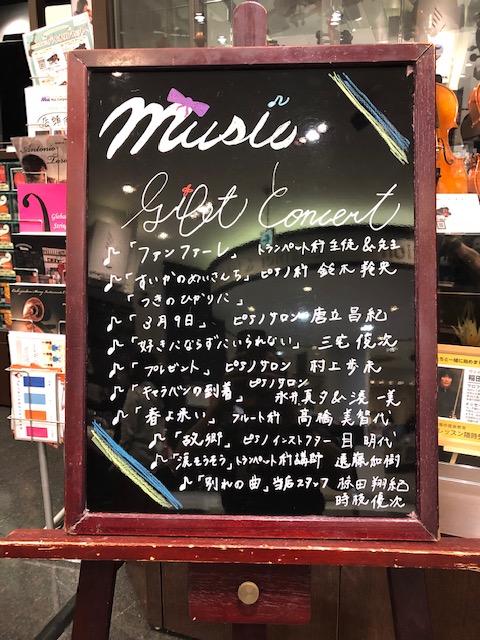 music
Gift Concert
♪「ファンファーレ」 トランペット科生徒&先生
♪「すいかのめいさんち」ピアノ科 鈴木
「つきのひかりに」
♪「3月9日」 ピアノサロン 唐立昌紀
♪「好きにならずにいられない」 三宅俊次
♪「プレゼント」 ピアノサロン 村上歩
♪「キャラバンの到着」 ピアノサロン
永井真夕
♪「春よ来い」 フルート科 高橋美智代
♪「故郷」 ピアノインストラクター 目 明代
♪「涙そうそう」トランペット科講師 遠藤和樹
♪「別れの曲」当店スタッフ 翔紀
俊次
Antonio